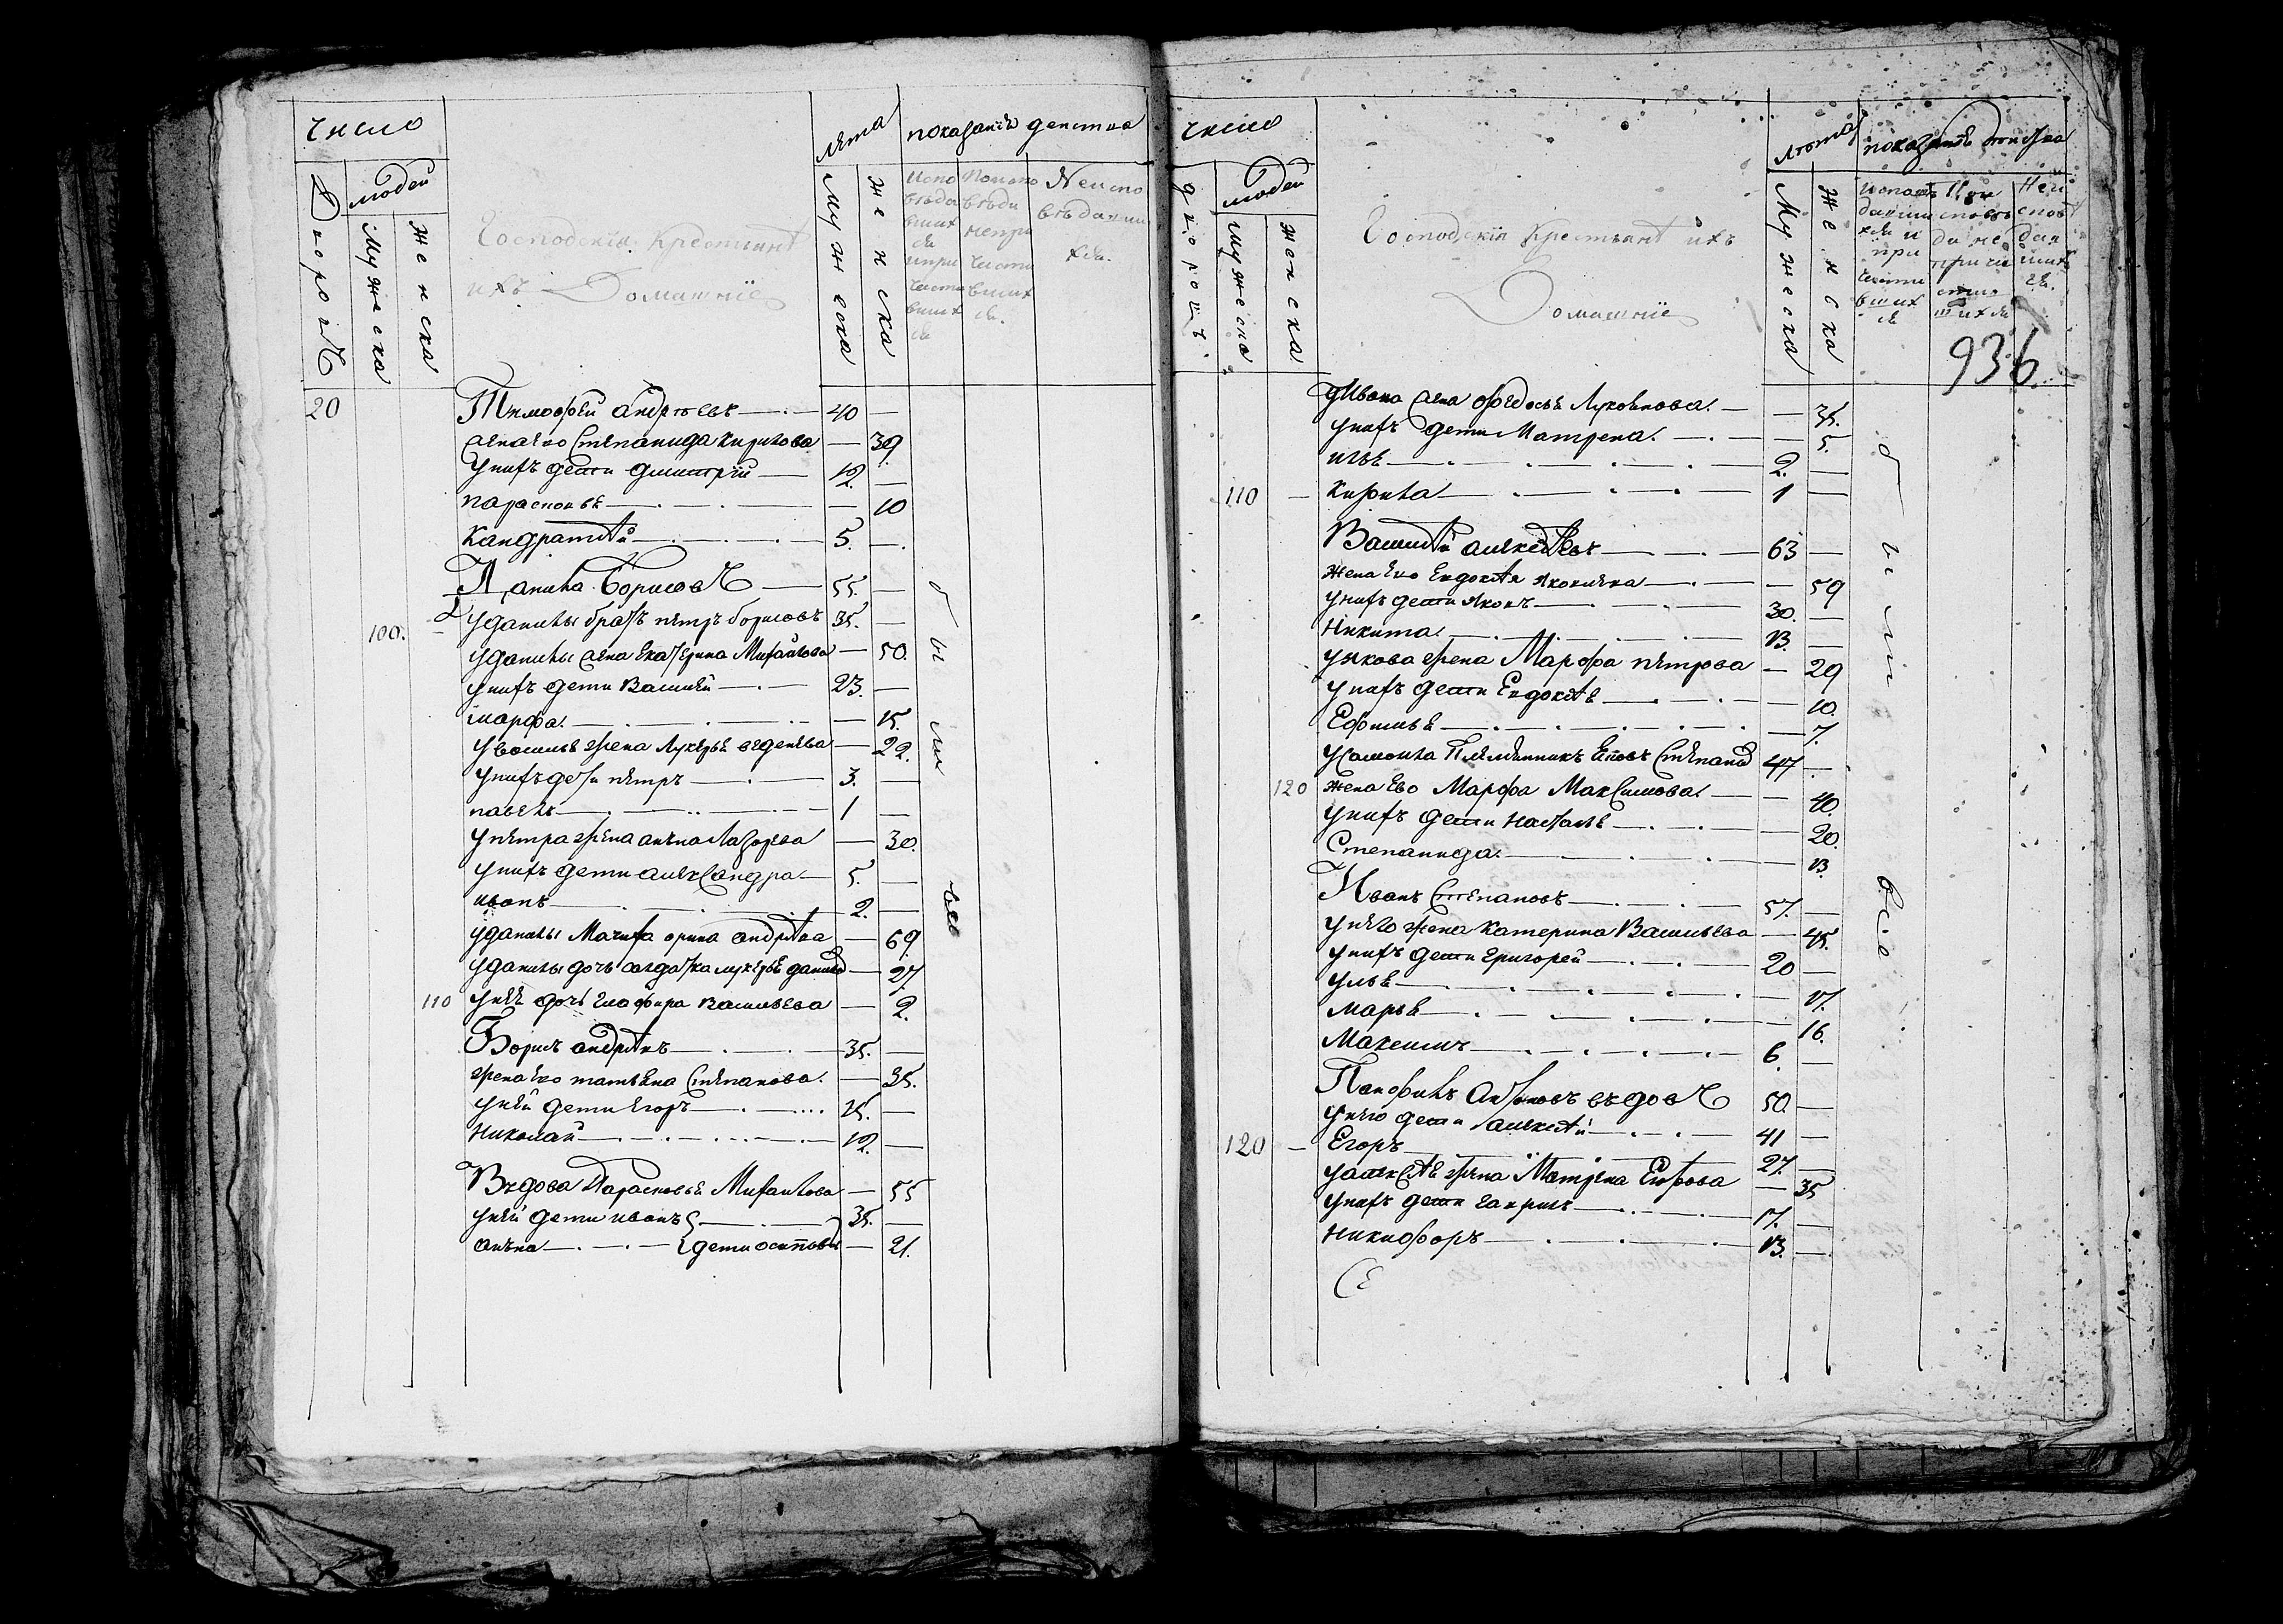 число
дворовъ
людей
мужеска
женска
Господскія Крестьянѣ
ихъ Домашніе
лѣта
мужеска
женска
показаніе действа
Испо
вѣда
вших
ся
и при
части
вших
ся
Испо
вѣди
непри
части
вших
ся.
Неиспо
вѣдавши
хся.
20 Тимофей андреевъ — 40 —
жена ево Степанида Кирилова — 39
у нихъ дети дмитрій — 12 —
парасковья — 10
Кандратѣй — 5. —
Данила Борисовъ — 55. —
100. у данилы братъ петръ борисовъ 35. —
у данилы жена Екатерина Михайлова — 50.
у нихъ дети Василей — 23. —
марфа — 15.
у василья жена Лукерья — 22.
у нихъ дети петръ — 3. —
павелъ — 1 —
у петра жена анъна Лазорева — 30.
у нихъ дети александра — 5. —
иванъ — 2. —
у данилы Мачиха орина андреева — 69
у данилы дочь салдатка лукерья данило — 27.
110 у нея дочь глафира васильева — 2.
Борисъ андреевъ — 35. —
жена ево татьяна Степанова. — 35.
у ней дети Егоръ — 15. —
Николай — 12. —
Въдова Парасковья Михайлова — 55
у ней дети иванъ — 35. —
анъна — дети осиповы — 21.
были
все
число
дворовъ.
людей
мужеска
женска
Господскія Крестьянѣ ихъ
Домашніе
лѣта
мужеска
женска
показаніе действа
936
у Ивана жена федосья Луковнова. — 35.
у нихъ дети Матрена. — 5.
илья — 2. —
110 — Кирила — 1 —
Василѣй алексѣевъ — 63 —
жена ево Евдокѣя Яковлева — 59
у нихъ дети Яковъ — 30. —
Никита — 13. —
у якова жена Марфа петрова — 29
у нихъ дети Евдокѣя — 10.
Ефимья — 7.
у Самойла Племянникъ Степанъ 47 —
120 жена Ево Марфа Максимова — 40.
у нихъ дети Наталья — 20.
Степанида. — 13.
Иванъ Степановъ — 57. —
у него жена Катерина Васильева — 45.
у нихъ дети Григорей — 20 —
улья — 17.
марья — 16.
Максимъ — 6. —
Панфилъ Антоновъ въдовъ 50 —
у него дети алексѣй — 41 —
120 — Егоръ — 27. —
у алексѣя жена Матрена Егорова — 35
у нихъ дети гаврилъ — 17. —
никифоръ — 13. —
были
все